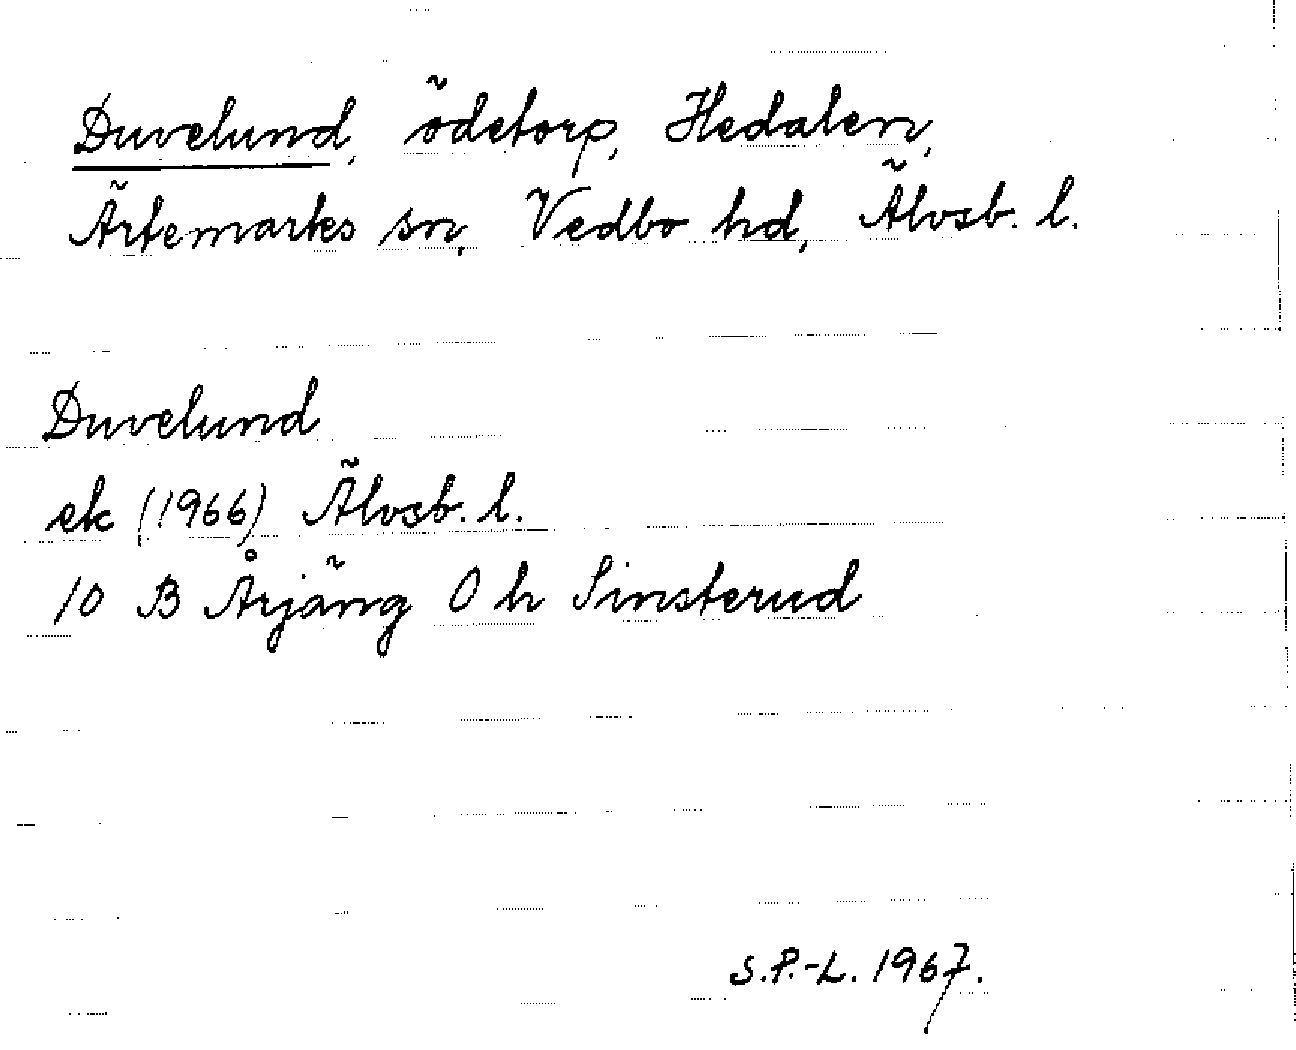 Duvelund, ödetorp, Hedalen,
Ärtemarks sn, Vedbo hd, Älvsb. l.
Duvelund
ek (1966) Älvsb. l.
10 B Årjäng 0 h Sinsterud
S.P.-L. 1967.